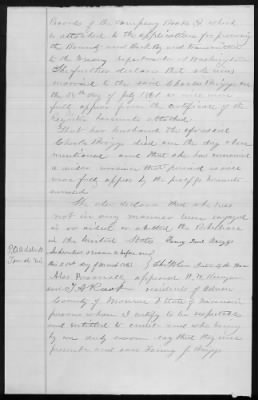 Records of the Company Books of which
is attached to the application for procuring
the Bounty and Back Pay and transmitted
to the Treasury department at Washington
She further declares that she was
married to the said Charles Briggs on
the day of July 186 as will more
fully appear from the certificate of the
hereunto attached
That her husband the aforesaid
Charles Briggs died on the day above
mentioned and that she has remained
a widow ever since that period as will
more fully appear by the proof hereunto
annexed
She also declares that she has
not in any manner been engaged
in or aided or abetted the Rebellion
in the United States Fanny Briggs
Subscribed & sworn to before me
the day of 186
Also Personally appeared W. W.
and residents of
County of Monroe & State of Wisconsin
persons whom I certify to be respectable
and entitled to credit and who being
by me duly sworn say that they were
present and saw Fanny J. Briggs
P.O. Address
Tomah Wis